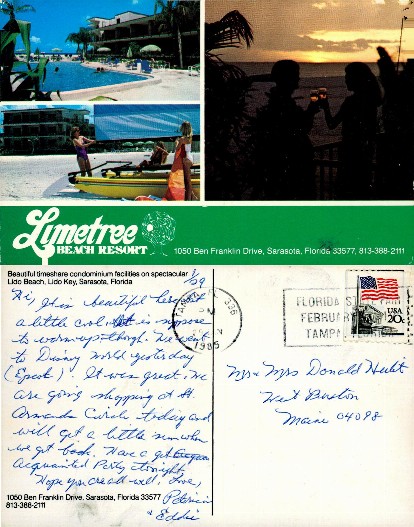 Lymetree
BEACH RESORT
1050 Ben Franklin Drive, Sarasota, Florida 33577, 813-388-2111
Beautiful timeshare condominium facilities on spectacular
Lido Beach, Lido Key, Sarasota, Florida
1/29
Hi,
It is beautiful here, but
a little cool, but is suppose
to warm up though. We went
to Disney World yesterday
(Epcot). It was great. We
are going shopping at St.
Armands Circle today and
will get a little sun when
we get back. Have a get
Acquainted Party tonight.
Hope you are all well. Love,
Patricia
& Eddie
1050 Ben Franklin Drive, Sarasota, Florida 33577
813-388-2111
336
PM
1985
FLORIDA STATE FAIR
FEBRUARY
TAMPA, FLORIDA
USA
20c
Mr & Mrs Donald Hulit
West Buxton
Maine 04098